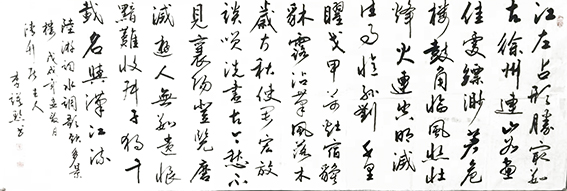 江左占形勝最數
古徐州連山如畫
佳處縹渺著危
樓鼓角臨風悲壯
烽火連空明滅
往事憶孫劉千里
曜戈甲萬灶宿貔
貅露沾草風落木
歲方秋使君宏放
談笑洗盡古今愁不
見襄陽登覽磨
滅遊人無數遺恨
黯難收叔子獨千
載名與漢江流
陸游詞水調歌頭多景
樓戊戌
主人
李